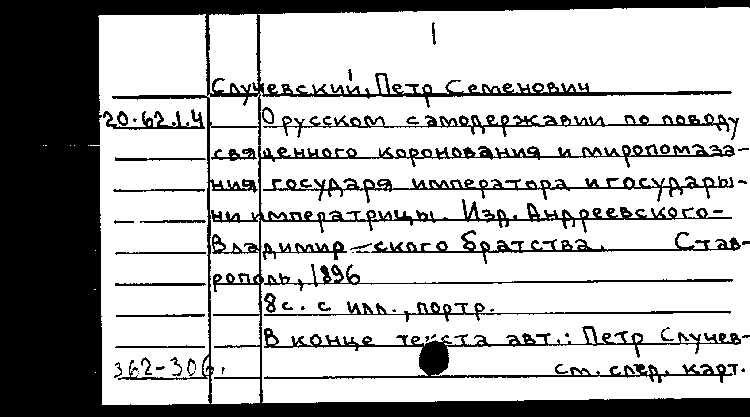 1
Случевский, Петр Семенович
20.62.1.4 О русском самодержавии по поводу
священного коронования и миропомаза-
ния государя императора и государы-
ни императрицы. Изд. Андреевского-
Владимир-ского братства. Став-
рополь, 1896
8 с. с илл., портр.
В конце текста авт.: Петр Случев-
362-306. см. след. карт.